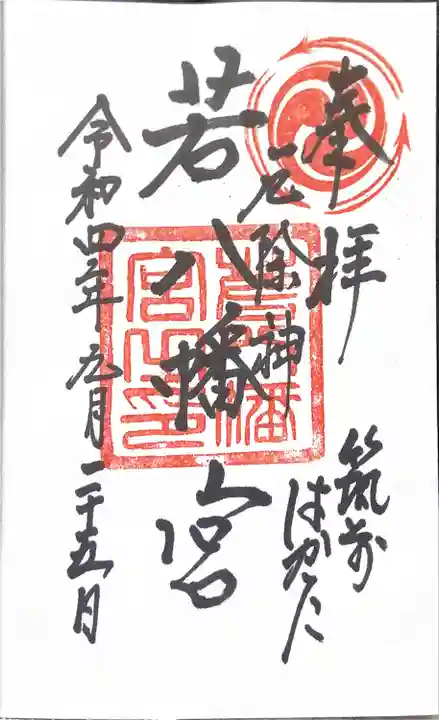 奉拝
筑前
はかた
厄除神
若八幡宮
令和四年九月二十五日
若八幡宮之印